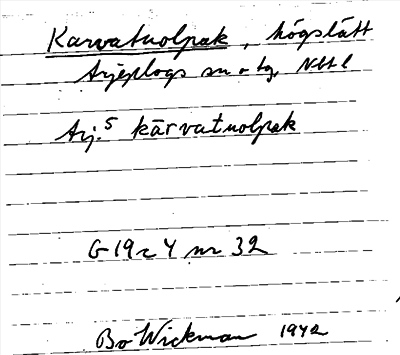 Karvatuolpak, högslätt
Arjeplogs sn o tg, Nbtl
Arj.⁵ kārvatuolpak
G 19 c 4 nr 32
Bo Wickman 1942